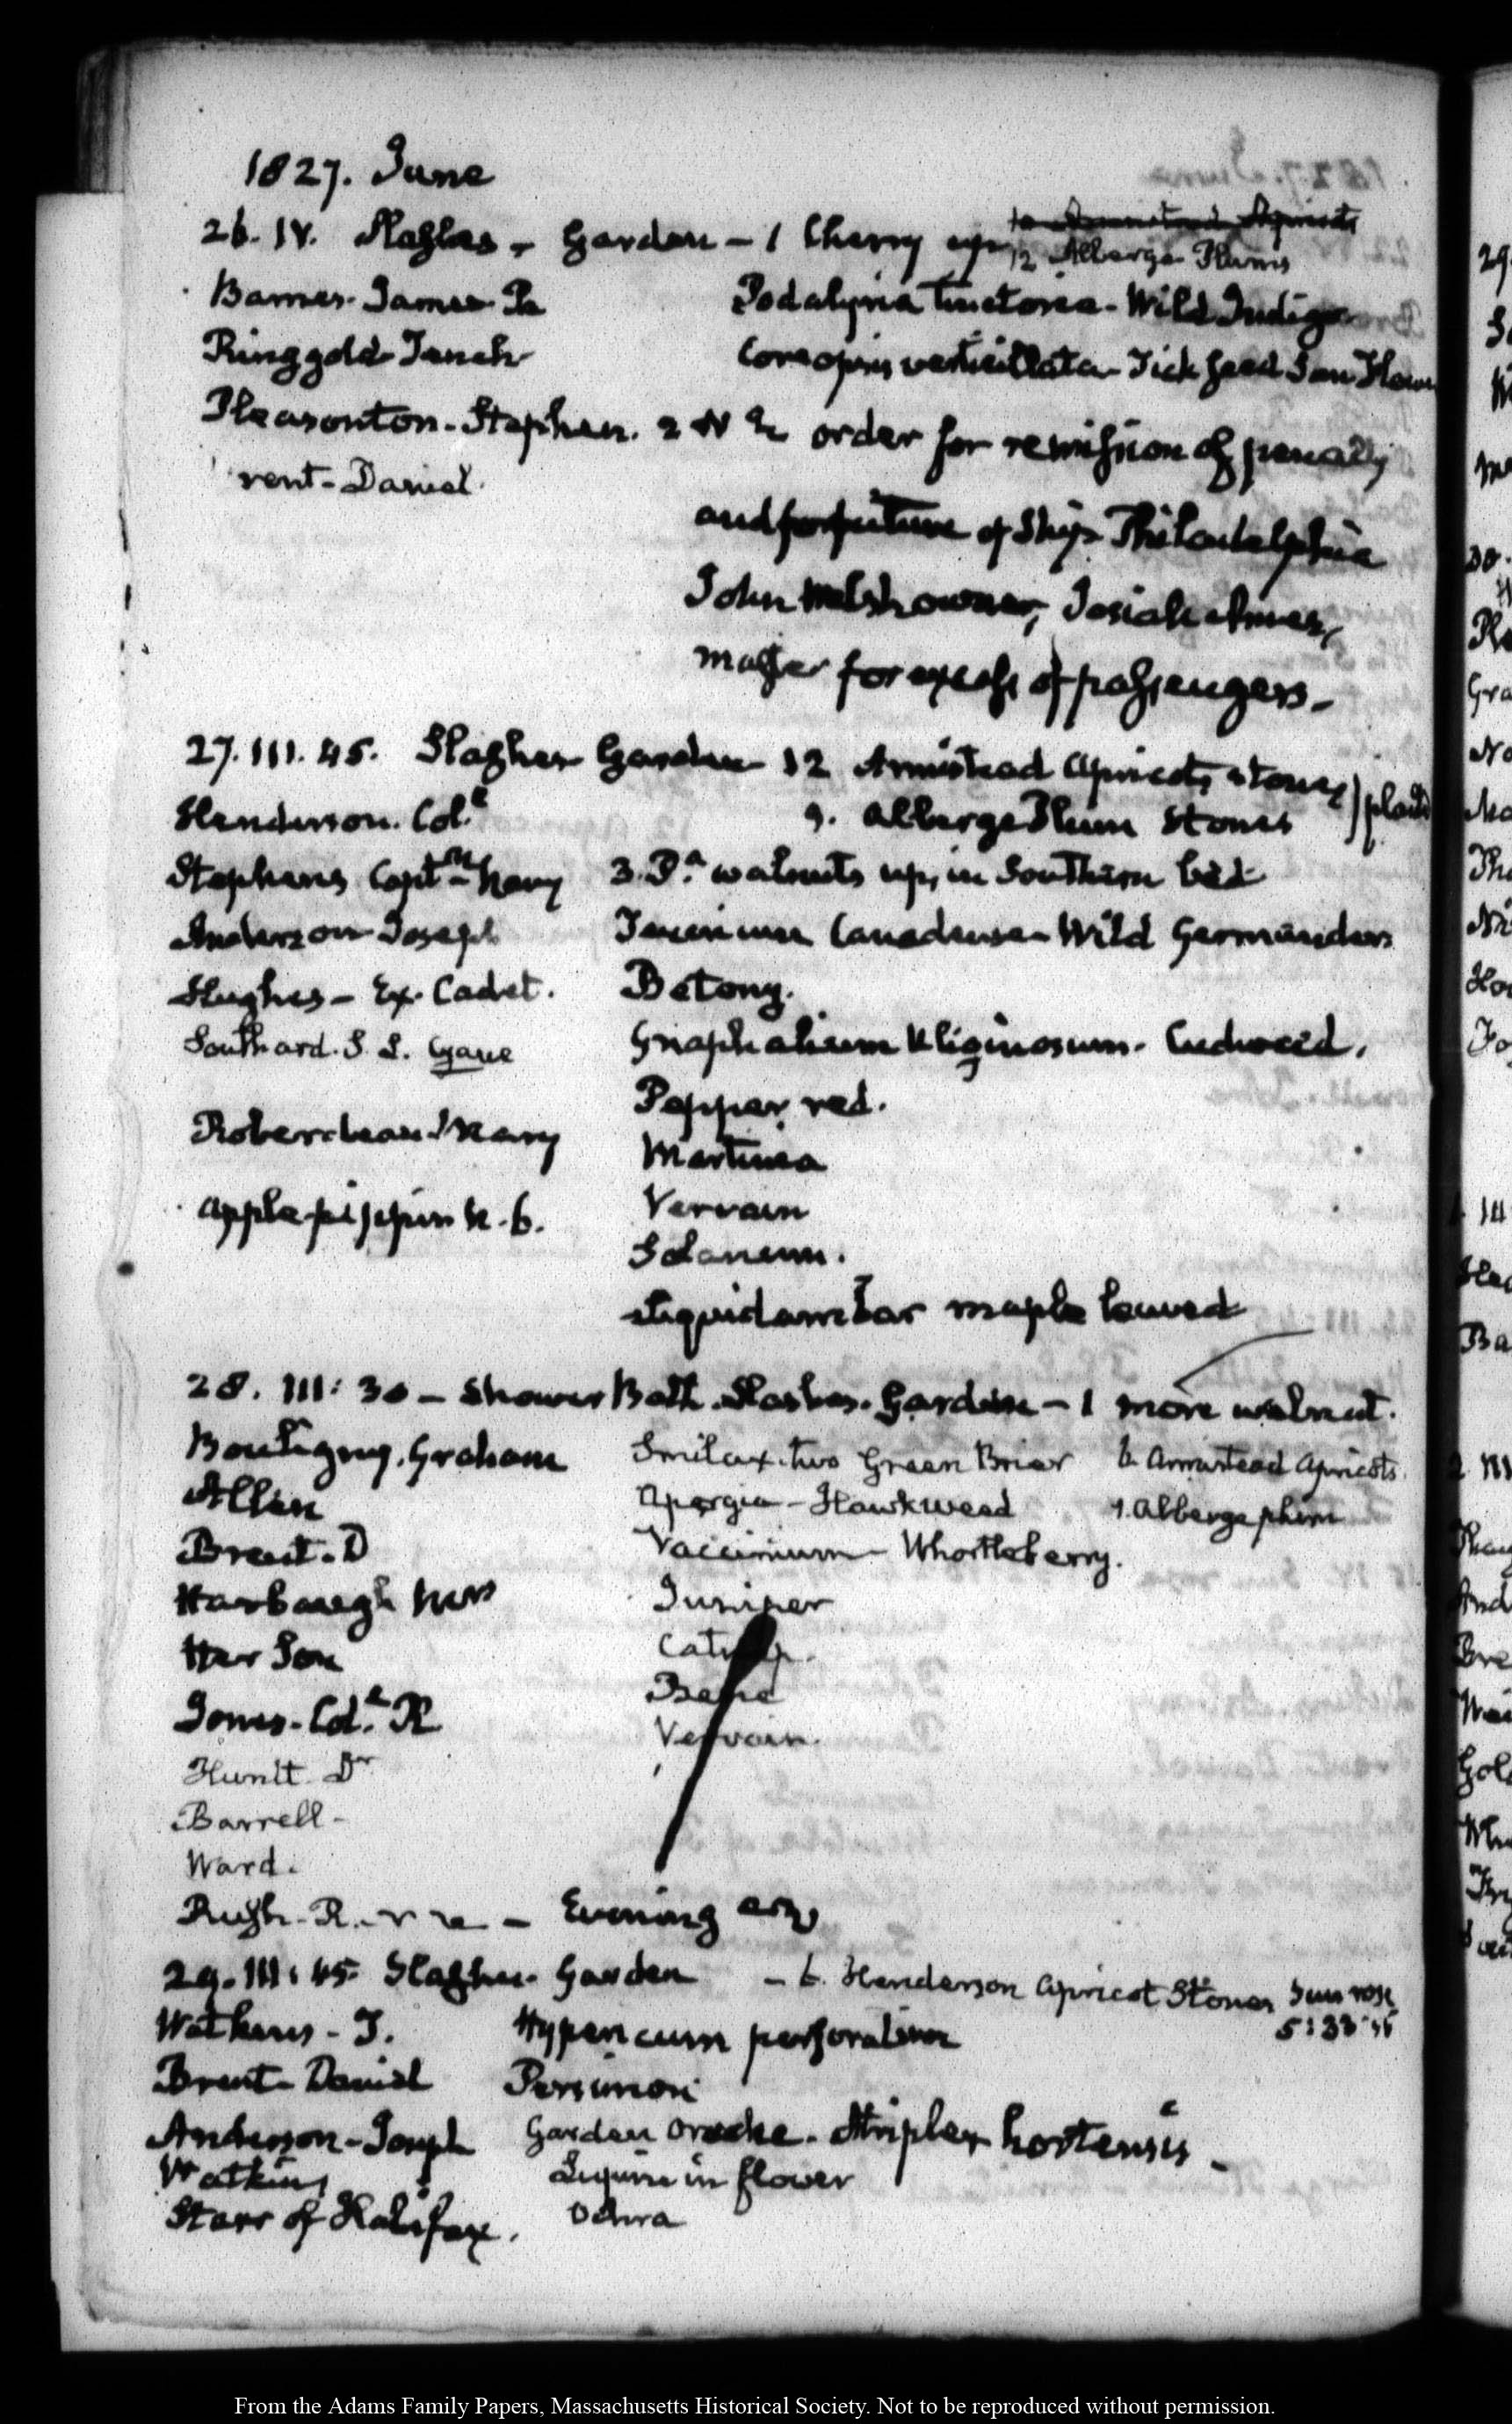 1827. June
26. IV. Slashes. Garden – 1 Cherry up
12 Alberge Plums
Barnes. James Pa
Podalyria Tinctoria – Wild Indigo
Ringgold Tench
Coreopsis verticillata – Tick Seed Sun Flower
Pleasonton. Stephen. order for remission of penalty
rent – Daniel.
and forfeiture of Ship Philadelphia
John Welsh owner, Josiah
master for excess of passengers –
27. III. 45. Slashes Garden 12 Armistead Apricots stones
Henderson. Col.
9. Alberge Plum Stones
Stephens Capt. Navy
3. Pa walnuts up, in Southern bed
Anderson Joseph
Canadense – Wild Germander
Hughes – Ex. Cadet.
Betony.
Southard. S. L. Gave
Gnaphalium Uliginosum. Cudweed.
Pepper, red.
Roberdeau Mary
Martinea
Vervain
apple-pippin N. 6.
Solanum.
Liquidambar maple leaved
28. III: 30 – Shower Bath. Slashes. Garden – 1 more walnut.
Bouligny. Graham
Smilax. two Green Briar 6. Armistead Apricots.
Allen
Apargia – Hawkweed 1. Alberge plum
Brent. D
Vaccinium – Whortleberry.
Harbaugh Mrs
Juniper
Her Son
Catnip.
Jones. Col. R
Vervain.
Huntt Dr
Barrell –
Ward.
Rush. R. – Evening
29. III: 45 Slashes. Garden – 6. Henderson Apricot Stones Sun rose
Watkins – T.
Hypericum perforatum
Brent – Daniel
Persimon
Anderson – Joseph
Garden Orache. Atriplex hortensis –
Watkins
in flower
Starr of Halifax.
Ochra
From the Adams Family Papers, Massachusetts Historical Society. Not to be reproduced without permission.